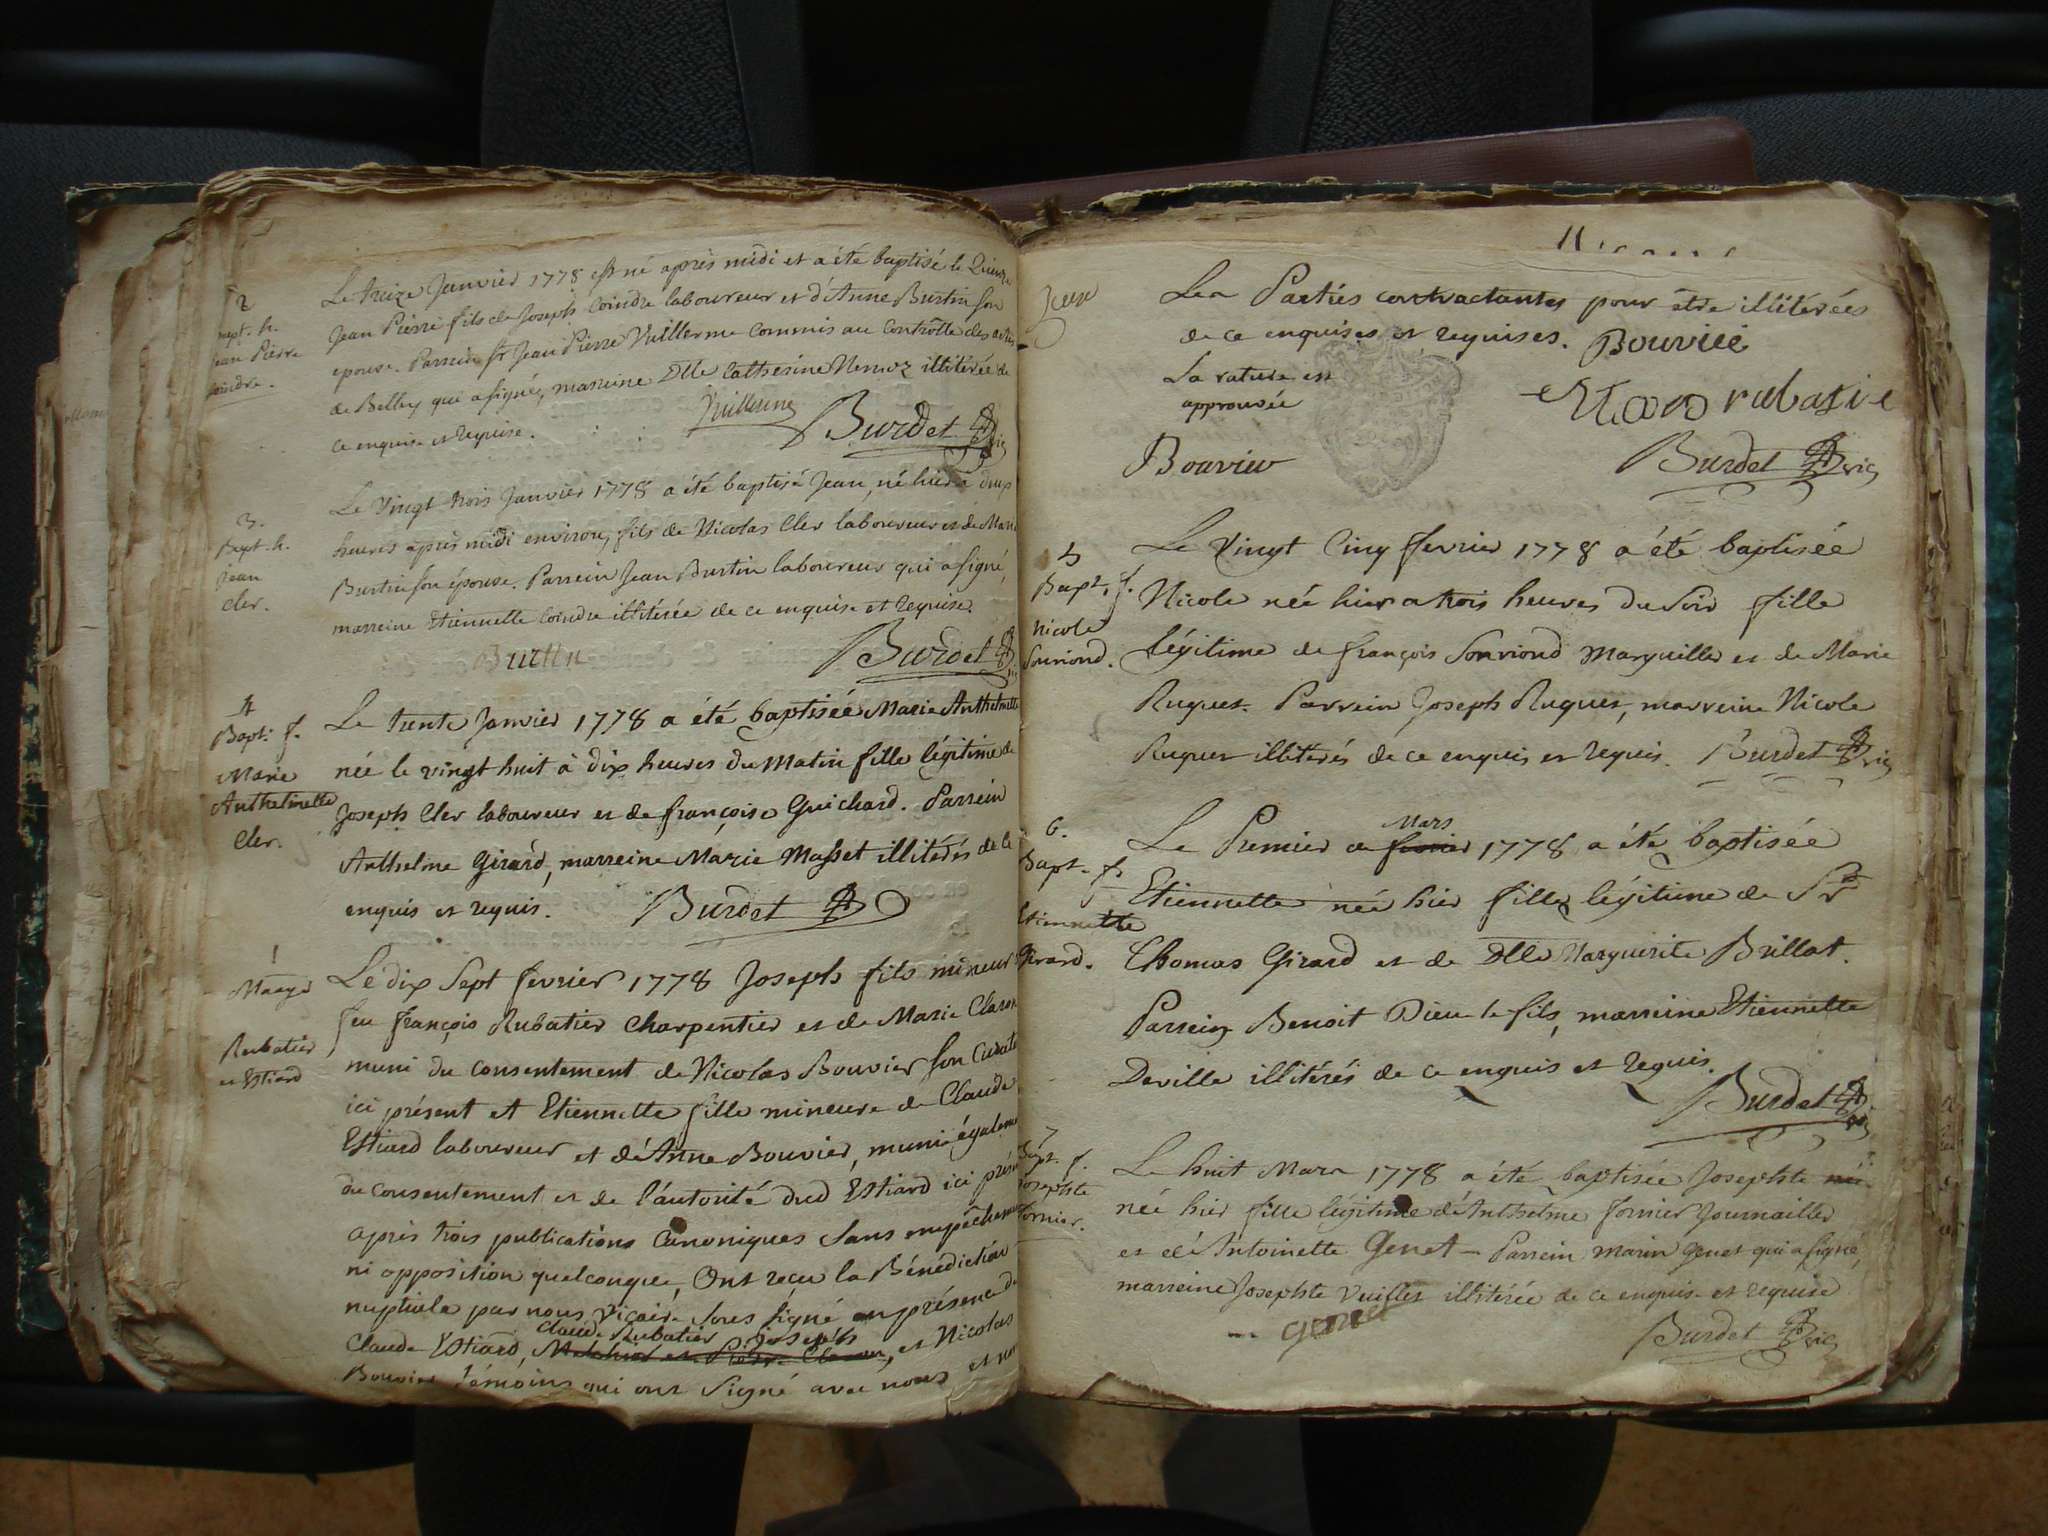 2
Bapt. h.
Jean Pierre
Coindre.
Le treize Janvier 1778 est né après midi et a été baptisé le Quinze
Jean Pierre fils de Joseph Coindre laboureur et d'Anne Burtin son
epouse. Parrein Sr Jean Pierre Vuillerme Commis au Controlle des actes
de Belley qui a signé, marreine Dlle Catherine illitérée de
ce enquise et requise.
Vuillerme
Burdet vic
3.
Bapt. h.
Jean
Cler.
Le Vingt trois Janvier 1778 a été baptisé Jean, né hier à deux
heures après midi environ, fils de Nicolas Cler laboureur et de Marie
Burtin son épouse. Parrein Jean Burtin laboureur qui a signé,
marreine Etiennette Coindre illitérée de ce enquise et requise.
Burtin
Burdet
4
Bapt. f.
Marie
Anthelmette
Cler.
Le trente Janvier 1778 a été baptisée Marie Anthelmette
née le vingt huit à dix heures du Matin fille légitime de
Joseph Cler laboureur et de françoise Guichard. Parrein
Anthelme Girard, marreine Marie Masset illitérés de ce
enquis et requis.
Burdet
1
Mariage
Rubatier
et Estiard
Le dix Sept fevrier 1778 Joseph fils mineur
feu françois Rubatier Charpentier et de Marie Claron
muni du consentement de Nicolas Bouvier son Curate
ici présent et Etiennette fille mineure de Claude
Estiard laboureur et d'Anne Bouvier, munie égaleme
du consentement et de l'autorité dud Estiard ici prése
après trois publications Canoniques sans empêcheme
ni opposition quelconque, Ont reçu la Bénédiction
nuptiale par nous Vicaire sous signé en présence de
Claude Rubatier Joseph
Claude Estiard, Melchior et Pierre Claron, et Nicolas
Bouvier témoins qui ont signé avec nous et non
Les Parties contractantes pour être illitérées
de ce enquises et requises. Bouvier
La rature est
approuvée
rubatie
Bouvier
Burdet vic
5
Bapt. f.
Nicole
Sonriond.
Le Vingt Cinq fevrier 1778 a été baptisée
Nicole née hier a trois heures du Soir fille
légitime de françois Sonriond Marguiller et de Marie
Ruguet. Parrein Joseph Ruguet, marreine Nicole
Ruguet illitérés de ce enquis et requis. Burdet vic
6.
Bapt. f.
Etiennette
Girard.
Mars
Le Premier de fevrier 1778 a été baptisée
Etiennette née hier fille légitime de Sr
Thomas Girard et de Dlle Marguerite Brillat.
Parrein Benoit Dieu le fils, marreine Etiennette
Deville illitérés de ce enquis et requis.
Burdet
7
Bapt. f.
Josephte
fornier.
Le huit Mars 1778 a été baptisée Josephte née
née hier fille légitime d'Anthelme fornier Journailler
et d'Antoinette Genet - Parrein marin Genet qui a signé,
marreine Josephte Vuillet illitérée de ce enquise et requise
genet
Burdet vic